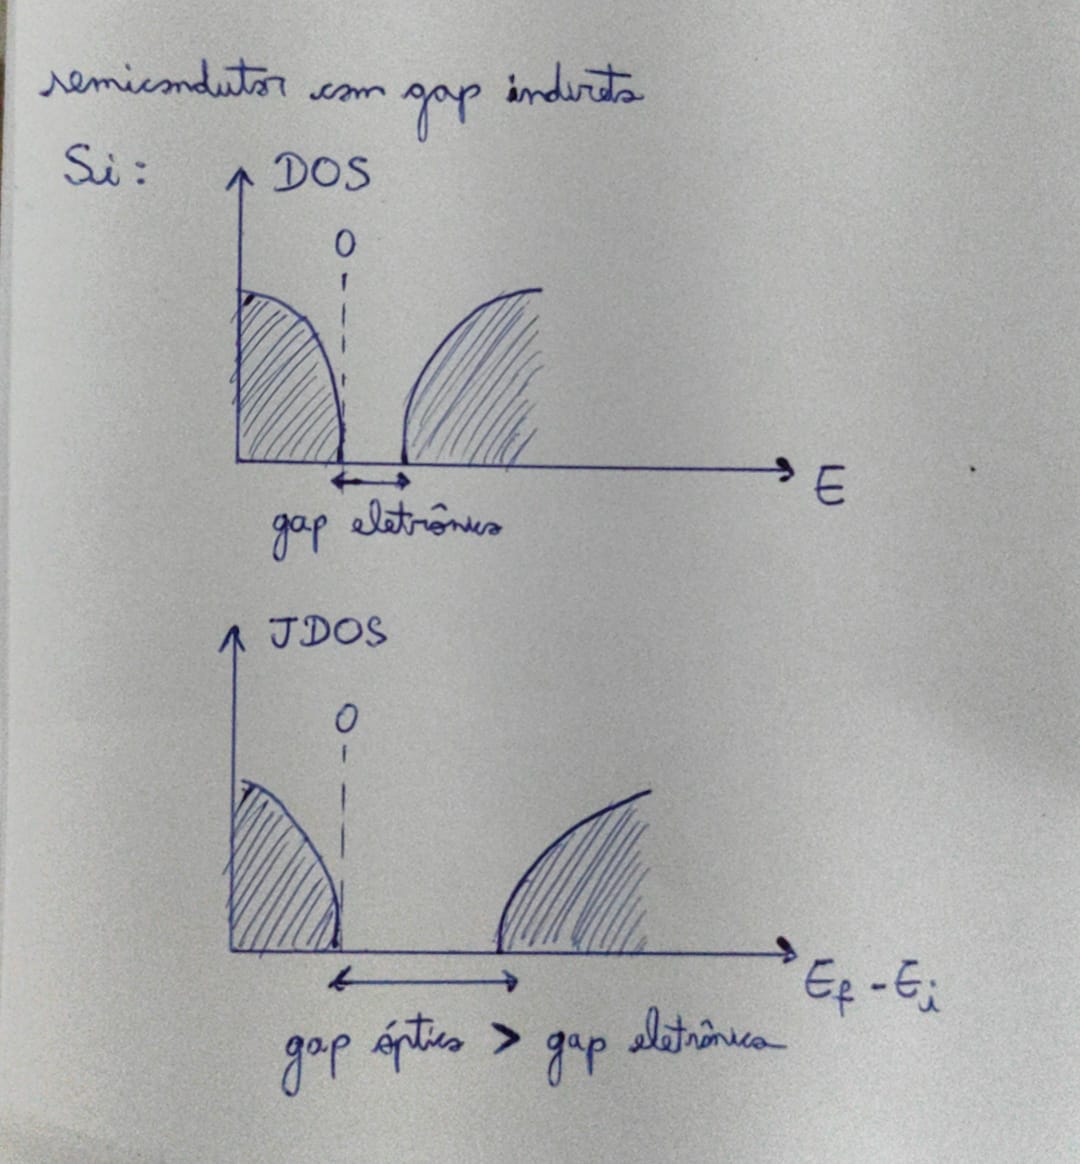 semicondutor com gap indireto
Si:
DOS
0
E
gap eletrônico
JDOS
0
Ef - Ei
gap óptico > gap eletrônico